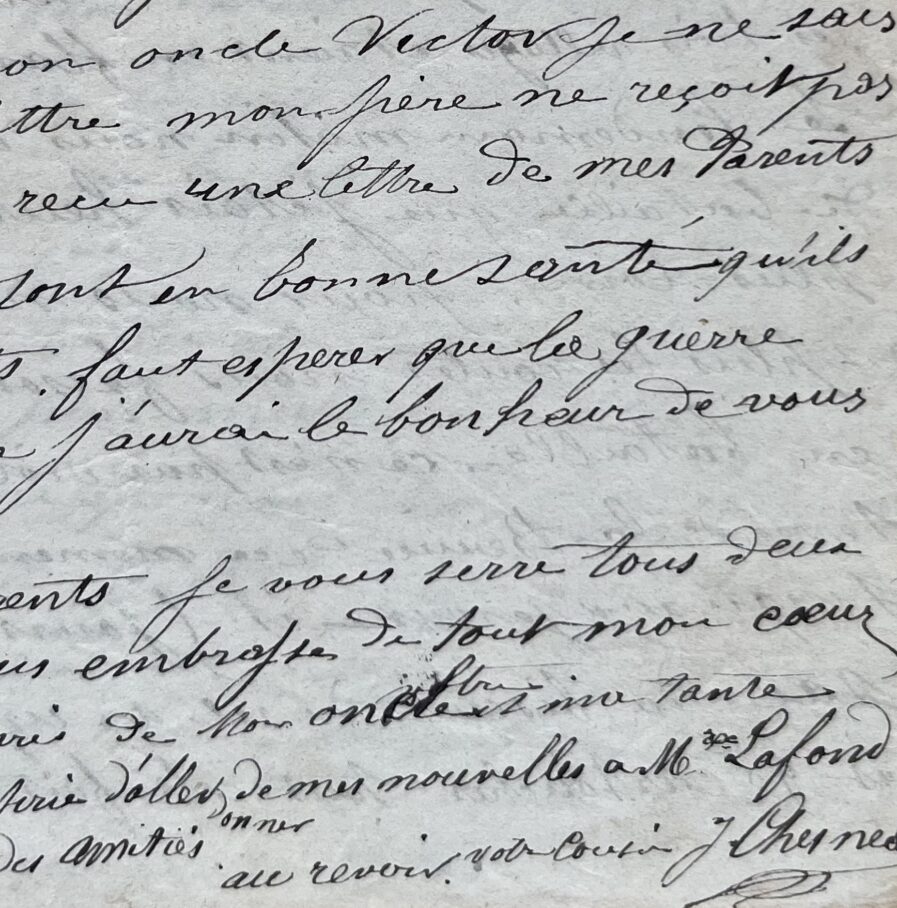 on oncle Victor Je ne sais
ttre mon frère ne reçoit pas
recu une lettre de mes Parents
sont en bonne santé qu'ils
ts. faut esperer que la guerre
j'aurai le bonheur de vous
ents Je vous serre tous deux
us embrasse de tout mon cœur
de mon oncle et ma tante
d'aller de mes nouvelles a Mme Lafond
des amitiés onner
au revoir. votre cousin J Chesne